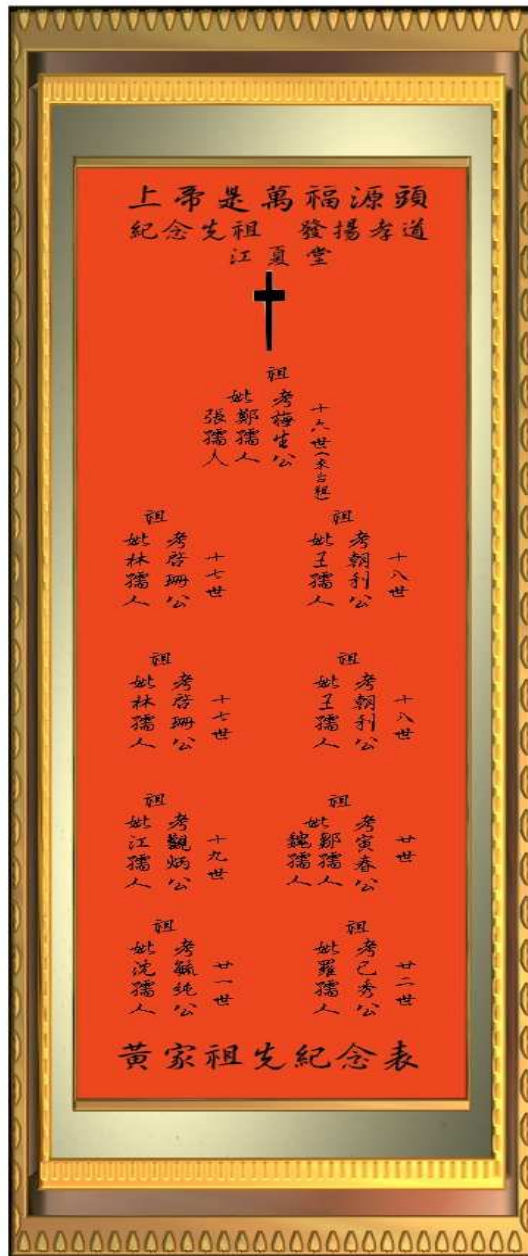 上帝是萬福源頭
紀念先祖 發揚孝道
江夏堂
祖
十六世(來台祖)
考梅生公
妣鄭孺人
張孺人
祖
十八世
考朝利公
妣王孺人
祖
十七世
考啓珊公
妣林孺人
祖
十八世
考朝利公
妣王孺人
祖
十七世
考啓珊公
妣林孺人
祖
廿世
考寅春公
妣鄒孺人
魏孺人
祖
十九世
考觀炳公
妣江孺人
祖
廿二世
考己秀公
妣羅孺人
祖
廿一世
考毓純公
妣沈孺人
黃家祖先紀念表